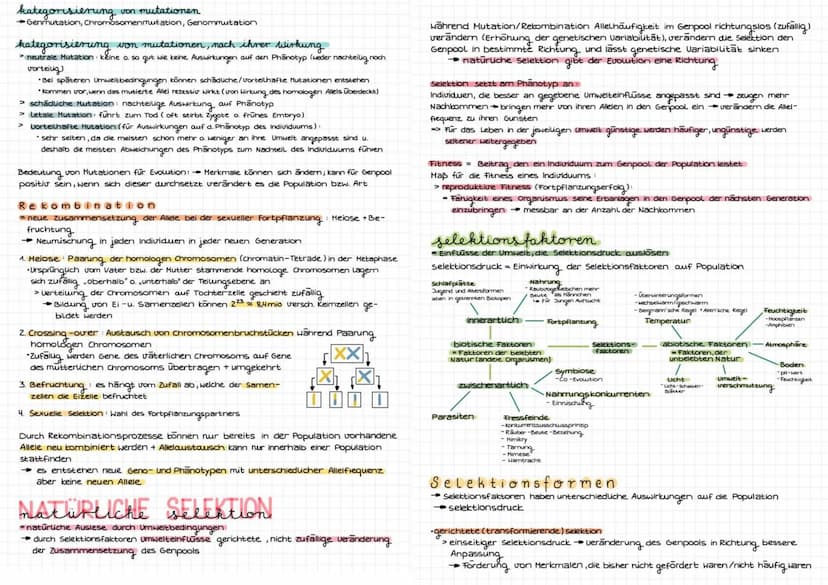 kategorisierung von mutationen
→ Genmutation, Chromosomenmutation, Genommutation
kategorisierung von mutationen, nach ihrer wirkung
> neutrale Mutation: keine o. so gut wie keine Auswirkungen auf den Phänotyp (weder nachteilig noch
vorteilig)
• Bei späteren Umweltbedingungen können schädliche/vorteilhafte Mutationen entstehen
• Kommen vor, wenn das mutierte Allel rezessiv wirkt (von Wirkung des homologen Allels überdeckt)
> schädliche Mutation: nachteilige Auswirkung auf Phänotyp
> Letale Mutation: führt zum Tod (oft stirbt Zygote o. frühes Embryo)
> Vorteilhafte Mutation (für Auswirkungen auf d. Phänotyp des Individuums):
• sehr selten, da die meisten schon mehr o. weniger an ihre Umwelt angepasst sind u.
deshalb die meisten Abweichungen des Phänotyps zum Nachteil des Individuums führen
Bedeutung von Mutationen für Evolution: → Merkmale können sich ändern; kann für Genpool
positiv sein, wenn sich dieser durchsetzt verändert es die Population bzw. Art
Rekombination
= neue Zusammensetzung der Allele bei der sexueller Fortpflanzung: Meiose + Be-
fruchtung
→ Neumischung in jeden Individuen in jeder neuen Generation
1. Meiose: Paarung der homologen Chromosomen (Chromatin-Tetrade) in der Metaphase
• Ursprünglich vom Vater bzw. der Mutter stammende homologe Chromosomen lagern
sich zufällig „oberhalb" o. „unterhalb" der Teilungsebene an
> Verteilung der Chromosomen auf Tochterzelle geschieht zufällig
→ Bildung von Ei- u. Samenzellen können 2²³ ≈ 8,4mio versch. Keimzellen ge-
bildet werden
2. Crossing-over: Austausch von Chromosomenbruchstücken während Paarung
homologen Chromosomen
• Zufällig werden Gene des väterlichen Chromosoms auf Gene
des mütterlichen Chromosoms übertragen + umgekehrt
3. Befruchtung: es hängt vom Zufall ab, welche der Samen-
zellen die Eizelle befruchtet
4. Sexuelle Selektion: Wahl des Fortpflanzungspartners
Durch Rekombinationsprozesse können nur bereits in der Population vorhandene
Allele neu kombiniert werden + Allelaustausch kann nur innerhalb einer Population
stattfinden
→ es entstehen neue Geno- und Phänotypen mit unterschiedlicher Allelfrequenz
aber keine neuen Allele
NATÜRLICHE SELEKTION
natürliche selektion
= natürliche Auslese durch Umweltbedingungen
→ durch Selektionsfaktoren Umwelteinflüsse gerichtete, nicht zufällige Veränderung
der Zusammensetzung des Genpools
während Mutation/Rekombination Allelhäufigkeit im Genpool richtungslos (zufällig)
verändern (Erhöhung der genetischen Variabilität), verändern die Selektion den
Genpool in bestimmte Richtung, und lässt genetische Variabilität sinken
→ natürliche Selektion gibt der Evolution eine Richtung
Selektion setzt am Phänotyp an:
Individuen, die besser an gegebene Umwelteinflüsse angepasst sind → zeugen mehr
Nachkommen → bringen mehr von ihren Allelen in den Genpool ein → verändern die Allel-
frequenz zu ihren Gunsten
⇒ Für das Leben in der jeweiligen Umwelt günstige werden häufiger, ungünstige werden
seltener weitergegeben
Fitness = Beitrag den ein Individuum zum Genpool der Population leistet
Maß für die Fitness eines Individuums:
> reproduktive Fitness (Fortpflanzungserfolg):
= Fähigkeit eines Organismus seine Erbanlagen in den Genpool der nächsten Generation
einzubringen → messbar an der Anzahl der Nachkommen
selektionsfaktoren
= Einflüsse der Umwelt, die Selektionsdruck auslösen
selektionsdruck = Einwirkung der Selektionsfaktoren auf Population
Schlafplätze
Jugend und Altersformen
leben in getrennten Biotopen
Nahrung
innerartlich
Fortpflanzung
biotische Faktoren
= Faktoren der belebten
Natur (andere Organismen)
Selektions-
faktoren
zwischenartlich
Symbiose
- Co-Evolution
Nahrungskonkurrenten
- Einnischung
Parasiten
Fressfeinde
- Konkurrenzausschlussprinzip
- Räuber-Beute-Beziehung
- Mimikry
- Tarnung
- Mimese
- Warntracht
- Überwinterungsformen
- wechselwarm/gleichwarm
- Bergmann'sche Regel + Allen'sche Regel
Temperatur
Feuchtigkeit
abiotische Faktoren
= Faktoren, der
unbelebten Natur
Atmosphäre
Boden
- pH-Wert
- Feuchtigkeit
Licht
Umwelt-
verschmutzung
Selektionsformen
→ Selektionsfaktoren haben unterschiedliche Auswirkungen auf die Population
→ selektionsdruck
• gerichtete (transformierende) selektion
> einseitiger Selektionsdruck → Veränderung des Genpools in Richtung, bessere
Anpassung
→ Förderung von Merkmalen, die bisher nicht gefördert waren/nicht häufig waren